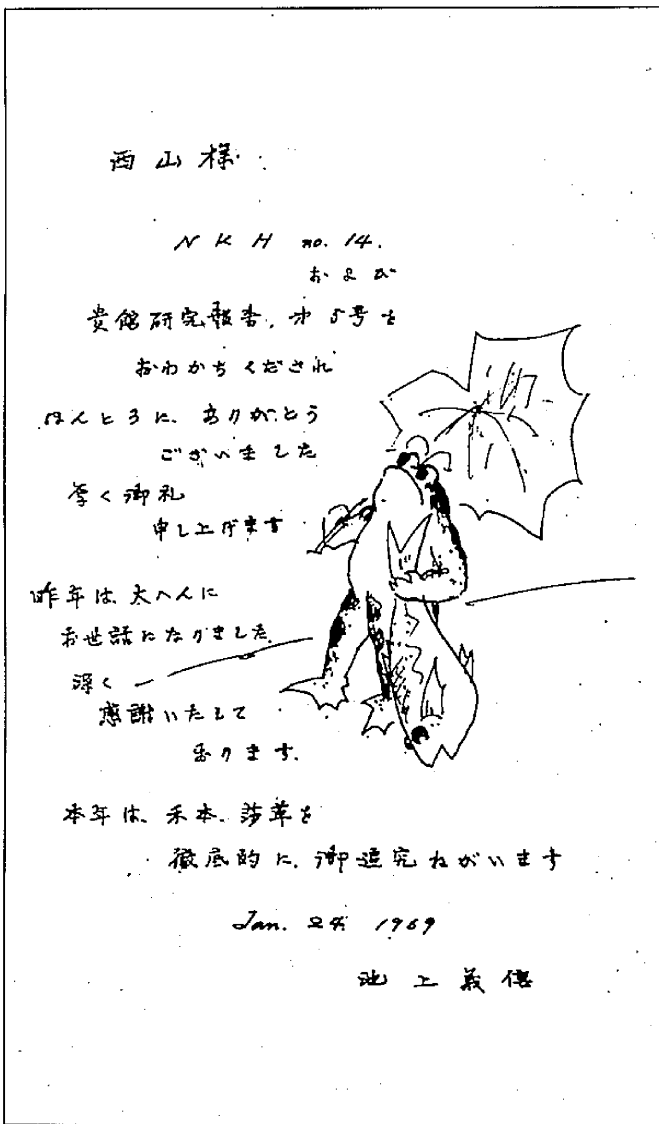 西山様
NKH no. 14.
および
貴館研究報告、才5号を
おわかちくだされ
ほんとうに、ありがとう
ございました
厚く御礼
申し上げます
昨年は、大へんに
お世話になりました。
深く
感謝いたして
居ります。
本年は、禾本、莎草を
徹底的に、御追究ねがいます
Jan. 24. 1969
池上義信